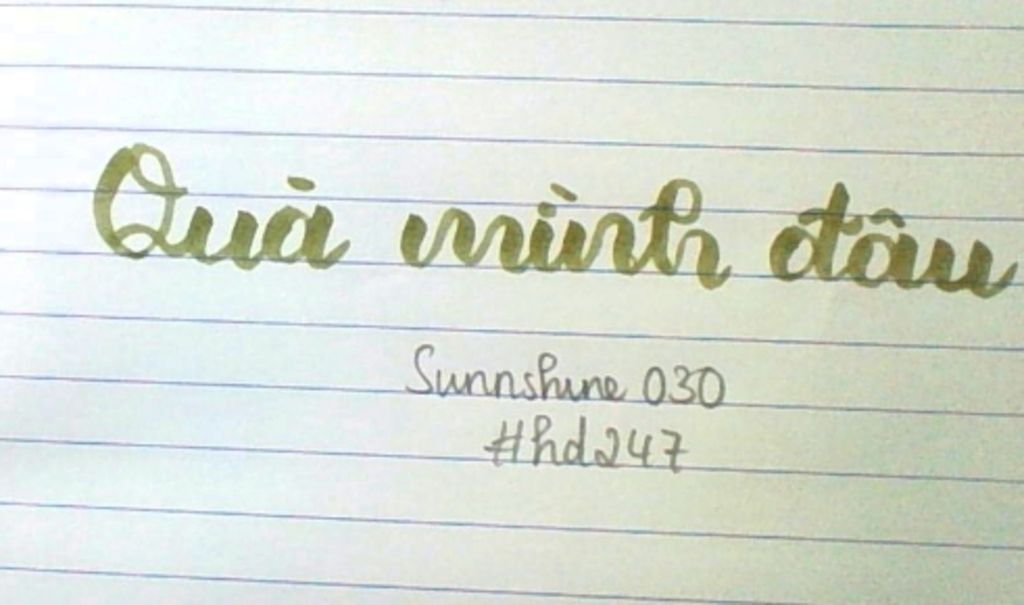 Quà mình đâu
Sunnshine 030
#hd247